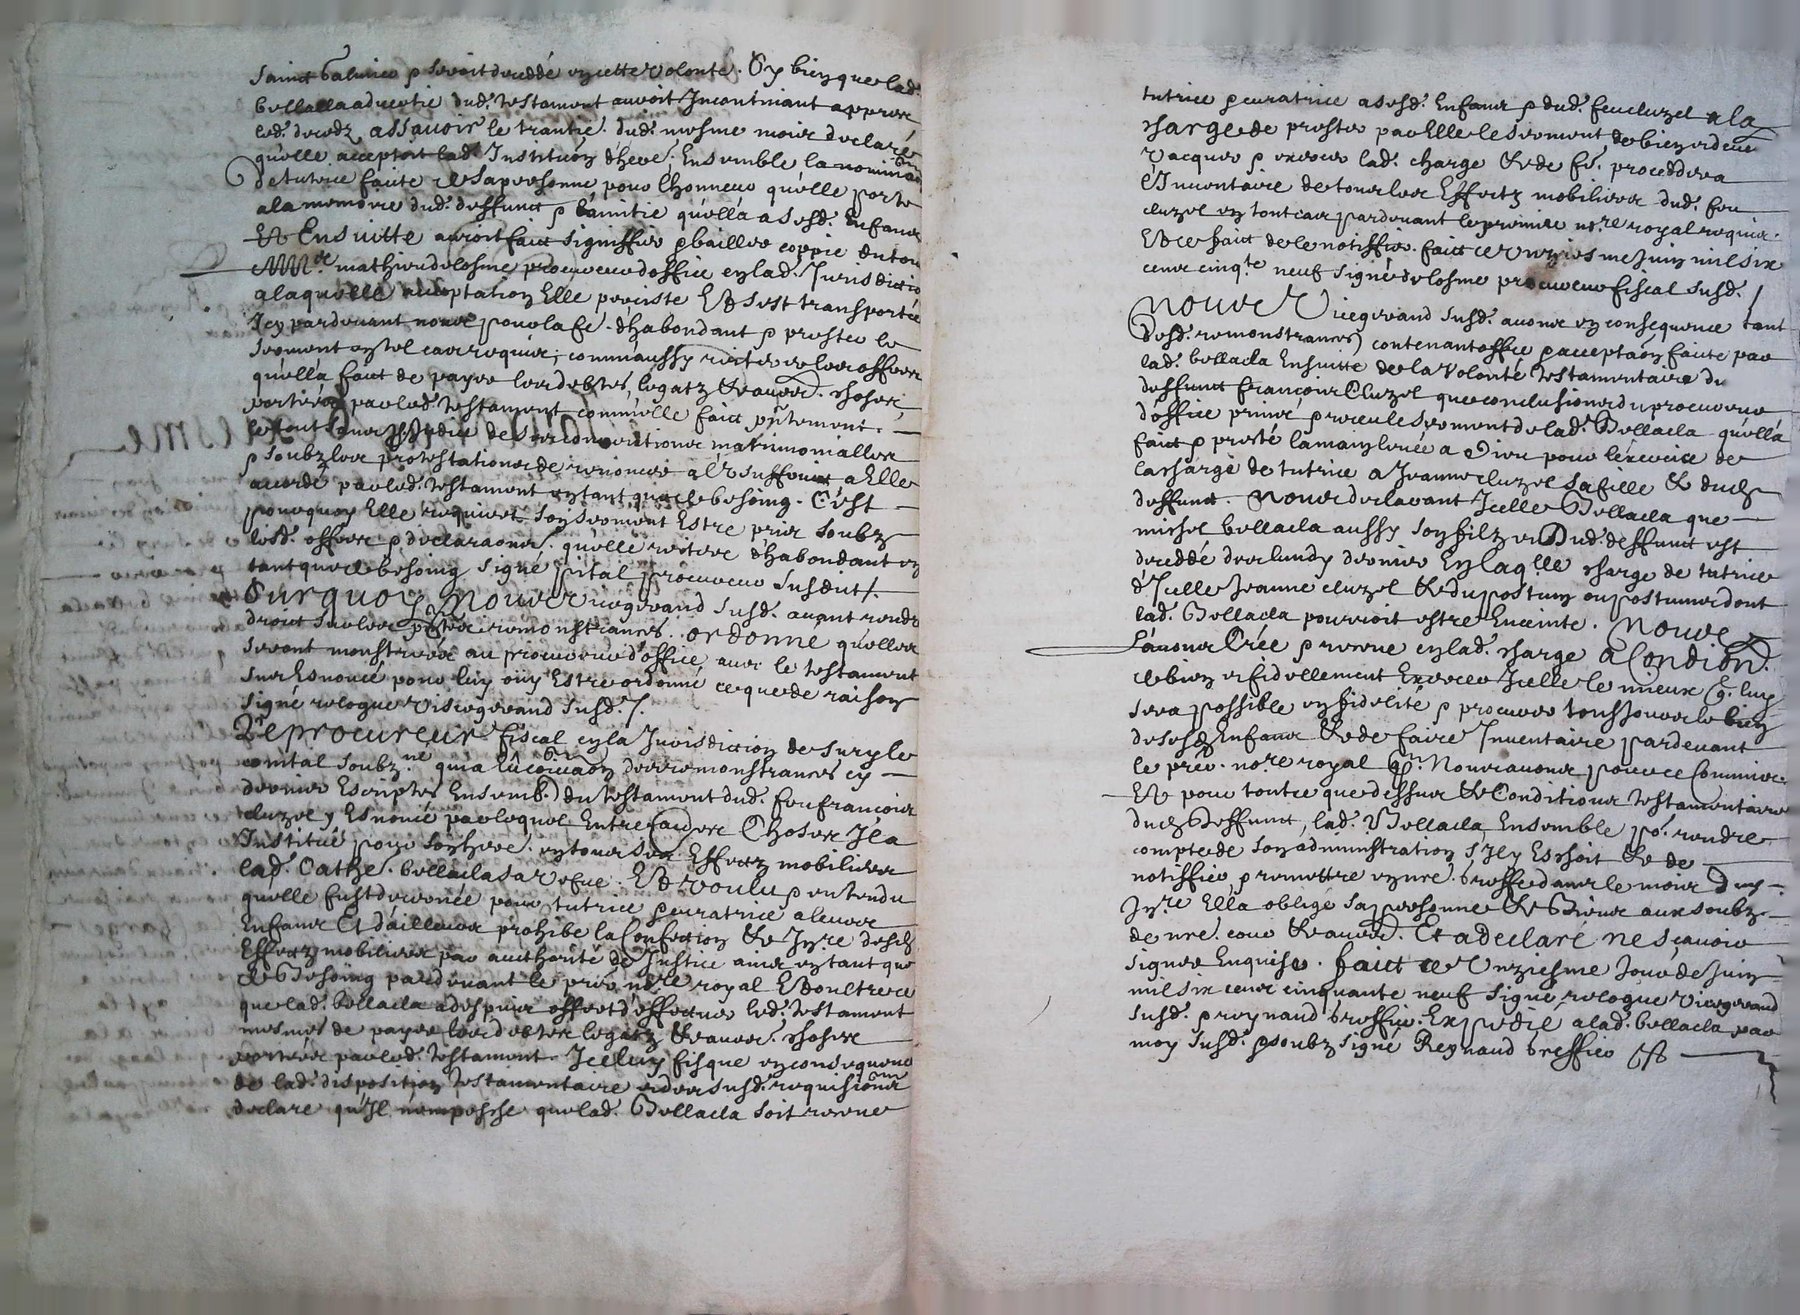 Sainct Galmier p seroit deceddé en cette volonté. Sy bien que lad.
bellacla advertie dud. testament auroit Incontinant apprez
led. decedz assauoir le trantie. dud. mesme mois declaré
quelle acceptoit lad. Institu͠on d'here. Ensemble la nominãon
de tutrice faite de sa personne pour lhonneur quelle porte
a la memoire dud. deffunct p lamitie quella a sesd. Enfans
Et Ensuitte auroit faict signiffier p bailler coppie du tou
a Mre. mathieu delesme procureur doffice en lad. Jurisdictio
a laquelle acceptation Elle perciste Et sest transportée
Icy pardeuant nous pour la fe. d'habondant p prester le
serment en tel cas requis, comm'aussy reiterer les offres
quella faict de payer les debtes, legatz & autres choses
portées par led. testament comm'elle faict p͠ntement.
le tout sans prejudice de ses conuentions matrimonialles
p soubz les protestations de renoncer a l'vsuffruict a Elle
accordé par led. testament en tant que de besoing. C'est
pourquoy Elle requiert son serment Estre pris soubz
lesd. offres p declara͠ons. quelle reitere d'habondant en
tant que de besoing signé pital procureur susdict /.
Surquoy Nous vicegerand susd. auant rendre
droict sur les p͠ntes remonstrances. ordonne quelles
seront monstrées au procureur d'office, auec le testament
sus Esnoncé pour luy ouy Estre ordonné ce que de raison
signé rologue viscegerand susd. /.
Le procureur fiscal en la Jurisdiction de Sury le
comtal soubz.né qui a eu co͠icãon des remonstrances cy
dernier Escriptes Ensemb. du testament dud. feu francois
cluzel y Esnoncé par lequel Entre autres Choses Il a
Institué pour son here. en tous ses Effectz mobiliers
lad. Cathe. bellacla sa vefue. Et voulu p entendu
quelle fust decernée pour tutrice p curatrice a leurs
Enfans Et d'ailleurs prohibe la Confection de Inre. desd.
Effectz mobiliers par authorité de Justice ains en tant que
de Besoing pardeuant le prer. nore. royal Et oultre ce
que lad. bellacla a despuis offert d'effectuer led. testament
mesmes de payer les debtes legatz & autres choses
portées par led. testament. Icelluy fisque en consequence
de lad. disposition testamentaire et des susd. requisi͠ons
declare qu'Il n'empesche que lad. Bellacla soit receue
tutrice p curatrice a sesd. Enfans p dud. feu cluzel a la
charge de prester par Elle le serment, de bien et deue
vacquer p exercer lad. charge & de fe. proceddera
Inuentaire de tous les Effectz mobiliers dud. feu
cluzel en tout cas pardeuant le premier nore. royal requis.
Et ce faict de le notiffier. faict ce vnziesme Juin mil six
cens cinqte. neuf signé delesme procureur fiscal susd.
Nous Vicegerand susd. auons en consequence tant
desd. remonstrances contenant offre p accepta͠on faite par
lad. bellacla Ensuitte de la volonté testamentaire du
deffunct francois Cluzel que conclusions du procureur
d'office prins p receu le serment de lad. Bellacla quella
faict p presté la main leuée a Dieu pour l'exercice de
la charge de tutrice a Jeanne cluzel sa fille & dud.
deffunct. Nous declarant Icelle Bellacla que
michel bellacla aussy son filz et Dud. deffunct est
deceddé des lundy dernier En laqlle charge de tutrice
d'Icelle Jeanne cluzel & du postum ou postumes dont
lad. Bellacla pourroit estre Enceinte. Nous
l'auons Crée p receue en lad. charge a Condi͠on.
de bien et fidellement Exercer Icelle le mieux q. luy
sera possible en fidelité p procurer tousjours le bien
desesd. Enfans & de faire Inuentaire pardeuant
le prer. nore. royal qn Nous auons pour ce Commis.
Et pour tout ce que dessus & Conditions testamentaires
dud. Deffunct, lad. Bellacla Ensemble po. rendre
compte de son administration s'Il y Eschoit & de
notiffier p remettre en nre. greffe dans le mois Dud.
Inre. Ella obligé sa personne & Biens aux soubz.
de nre. cour & autres. Et a declaré ne sçauoir
signer Enquise. faict ce vnziesme Jour de Juin
mil six cens cinquante neuf signé rologue vicegerand
susd. p reynaud greffier. Expedié a lad. bellacla par
moy susd. p soubz signé Reynaud greffier